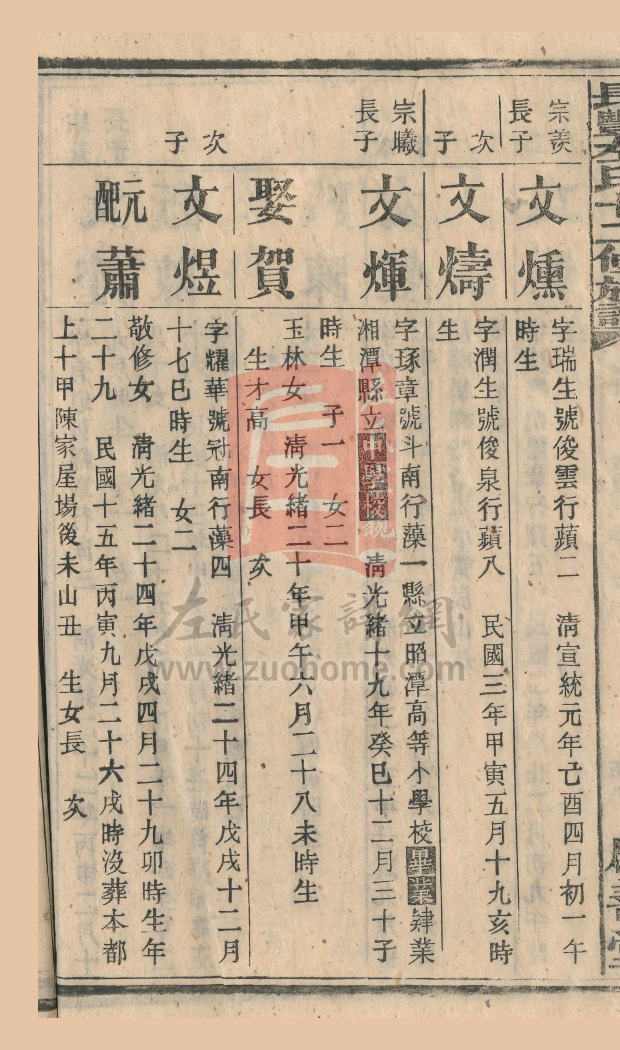 宗羨
長子
文燻
字瑞生號俊雲行蘋二　淸宣統元年己酉四月初一午
時生
次
子
文燾
字潤生號俊泉行蘋八　民國三年甲寅五月十九亥時
生
宗曦
長子
文煇
字琢章號斗南行藻一縣立昭潭高等小學校畢業肄業
湘潭縣立中學校　淸光緒十九年癸巳十二月三十子
時生　子一　女二
娶賀
玉林女　淸光緒二十年甲午六月二十八未時生
生才高　女長　次
次
子
文煜
字耀華號冠南行藻四　淸光緒二十四年戊戌十二月
十七巳時生　女二
元配蕭
敬修女　淸光緒二十四年戊戌四月二十九卯時生年
二十九　民國十五年丙寅九月二十六戌時沒葬本都
上十甲陳家屋場後未山丑　生女長　次
左氏家譜網
www.zuohome.com